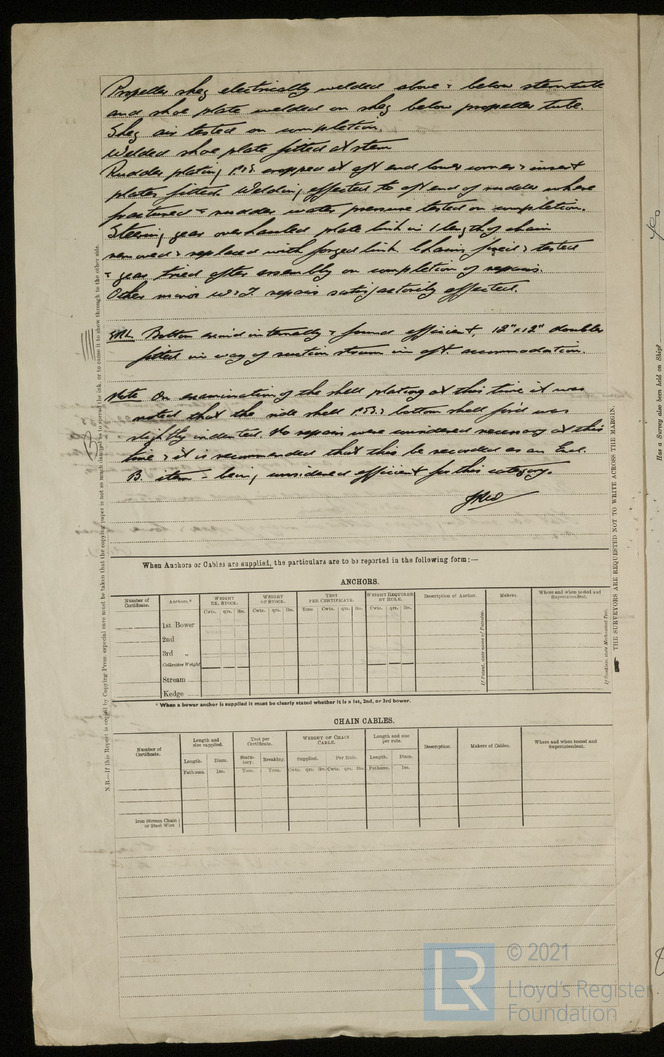 Propeller skeg electrically welded above & below sterntube
and shoe plate welded on skeg below propeller tube.
Skeg air tested on completion.
Welded shoe plate fitted at stem
Rudder plating P&S cropped at aft end lower corner & insert
plates fitted. Welding effected to aft end of rudder where
fractured & rudder water pressure tested on completion.
Steering gear overhauled plate link in 1 length of chain
removed & replaced with forged link. Chains & tested
& gear tried after assembly on completion of repairs.
Other minor W&T repairs satisfactorily effected.
Bottom exam'd internally & found efficient, 12"x12" doubler
fitted in way of suction in aft accommodation.
Note On examination of the shell plating at this time it was
noted that the side shell P&S & bottom shell for'd was
slightly indented. No repairs were considered necessary at this
time & it is recommended that this be recorded as an End.
B. item - being considered efficient for this category.
When Anchors or Cables are supplied, the particulars are to be reported in the following form:—
ANCHORS.
Number of Certificate. Anchors.* WEIGHT EX. STOCK. WEIGHT OF STOCK. TEST PER CERTIFICATE. WEIGHT REQUIRED BY RULE. Description of Anchor. Makers. Where and when tested and Superintendent.
Cwts. qrs. lbs. Cwts. qrs. lbs. Tons Cwts. qrs. lbs. Cwts. qrs. lbs.
1st Bower
2nd „
3rd „
Collective Weight
Stream
Kedge
If Patent, state name of Patentee.
* When a bower anchor is supplied it must be clearly stated whether it is a 1st, 2nd, or 3rd bower.
CHAIN CABLES.
Number of Certificate. Length and size supplied. Test per Certificate. WEIGHT OF CHAIN CABLE. Length and size per rule. Description. Makers of Cables. Where and when tested and Superintendent.
Length. Diam. Statutory. Breaking. Supplied. Per Rule. Length. Diam.
Fathoms. Ins. Tons. Tons. Cwts. qrs. lbs. Cwts. qrs. lbs. Fathoms. Ins.
Iron Stream Chain or Steel Wire
N.B.—If this Report is copied by Copying Press special care must be taken that the copying paper is not so much damped as to spread the ink, or to cause it to show through to the other side.
THE SURVEYORS ARE REQUESTED NOT TO WRITE ACROSS THE MARGIN.
Has a Survey also been held on Ship?
© 2021
Lloyd's Register
Foundation
LR